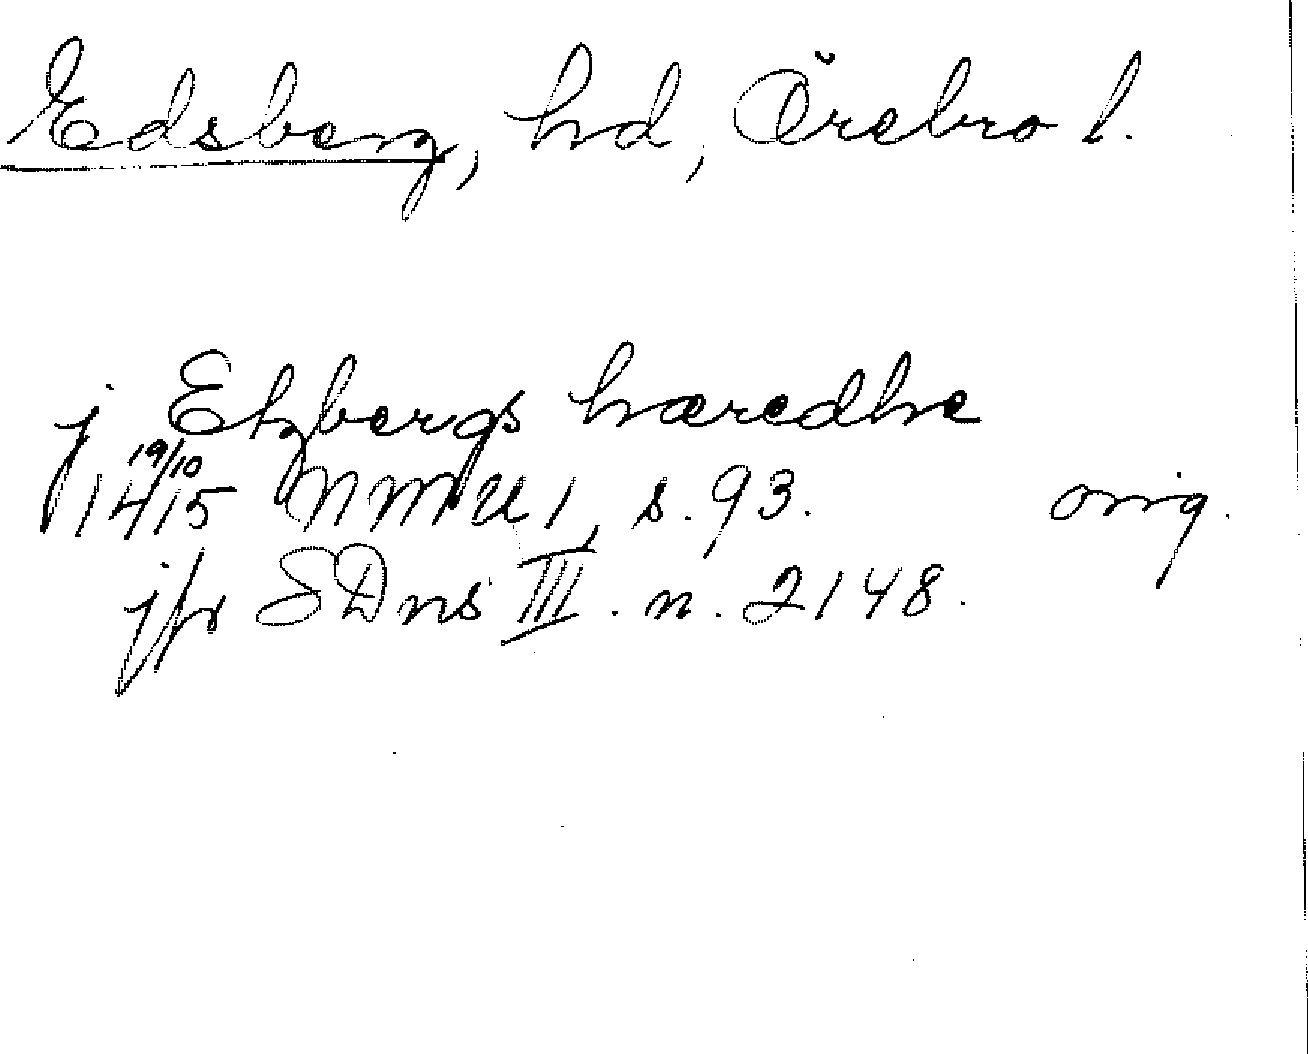 Edsberg, hd, Örebro l.
j Etzbergs hæredhe
19/10 1415 NMU 1, s. 93. orig.
jfr SDns III. n. 2148.